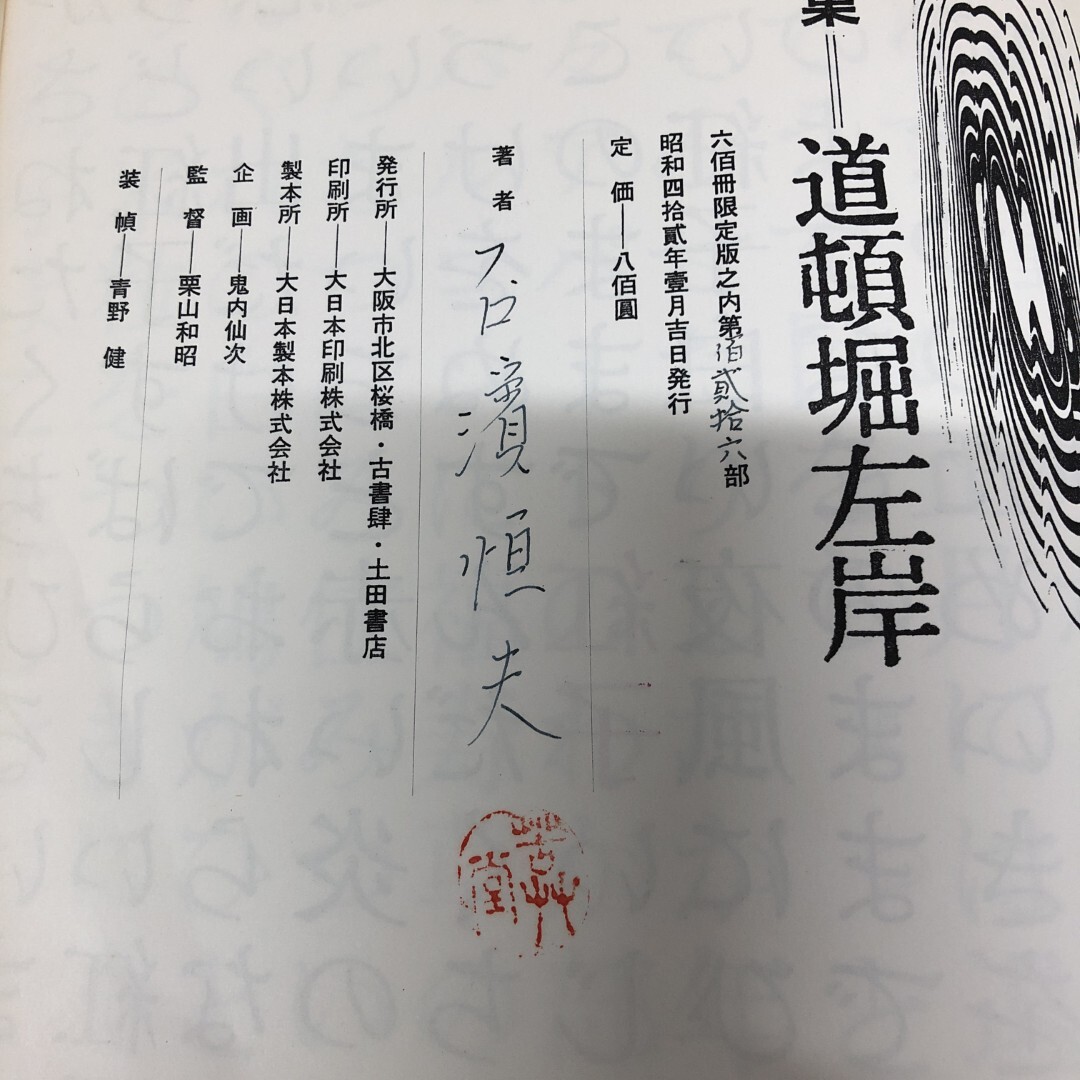 集──道頓堀左岸
六佰冊限定版之内第佰貳拾六部
昭和四拾貳年壹月吉日発行
定 価──八佰圓
著 者 石濱恒夫
発行所──大阪市北区桜橋・古書肆・土田書店
印刷所──大日本印刷株式会社
製本所──大日本製本株式会社
企 画──鬼内仙次
監 督──栗山和昭
装 幀──青野 健